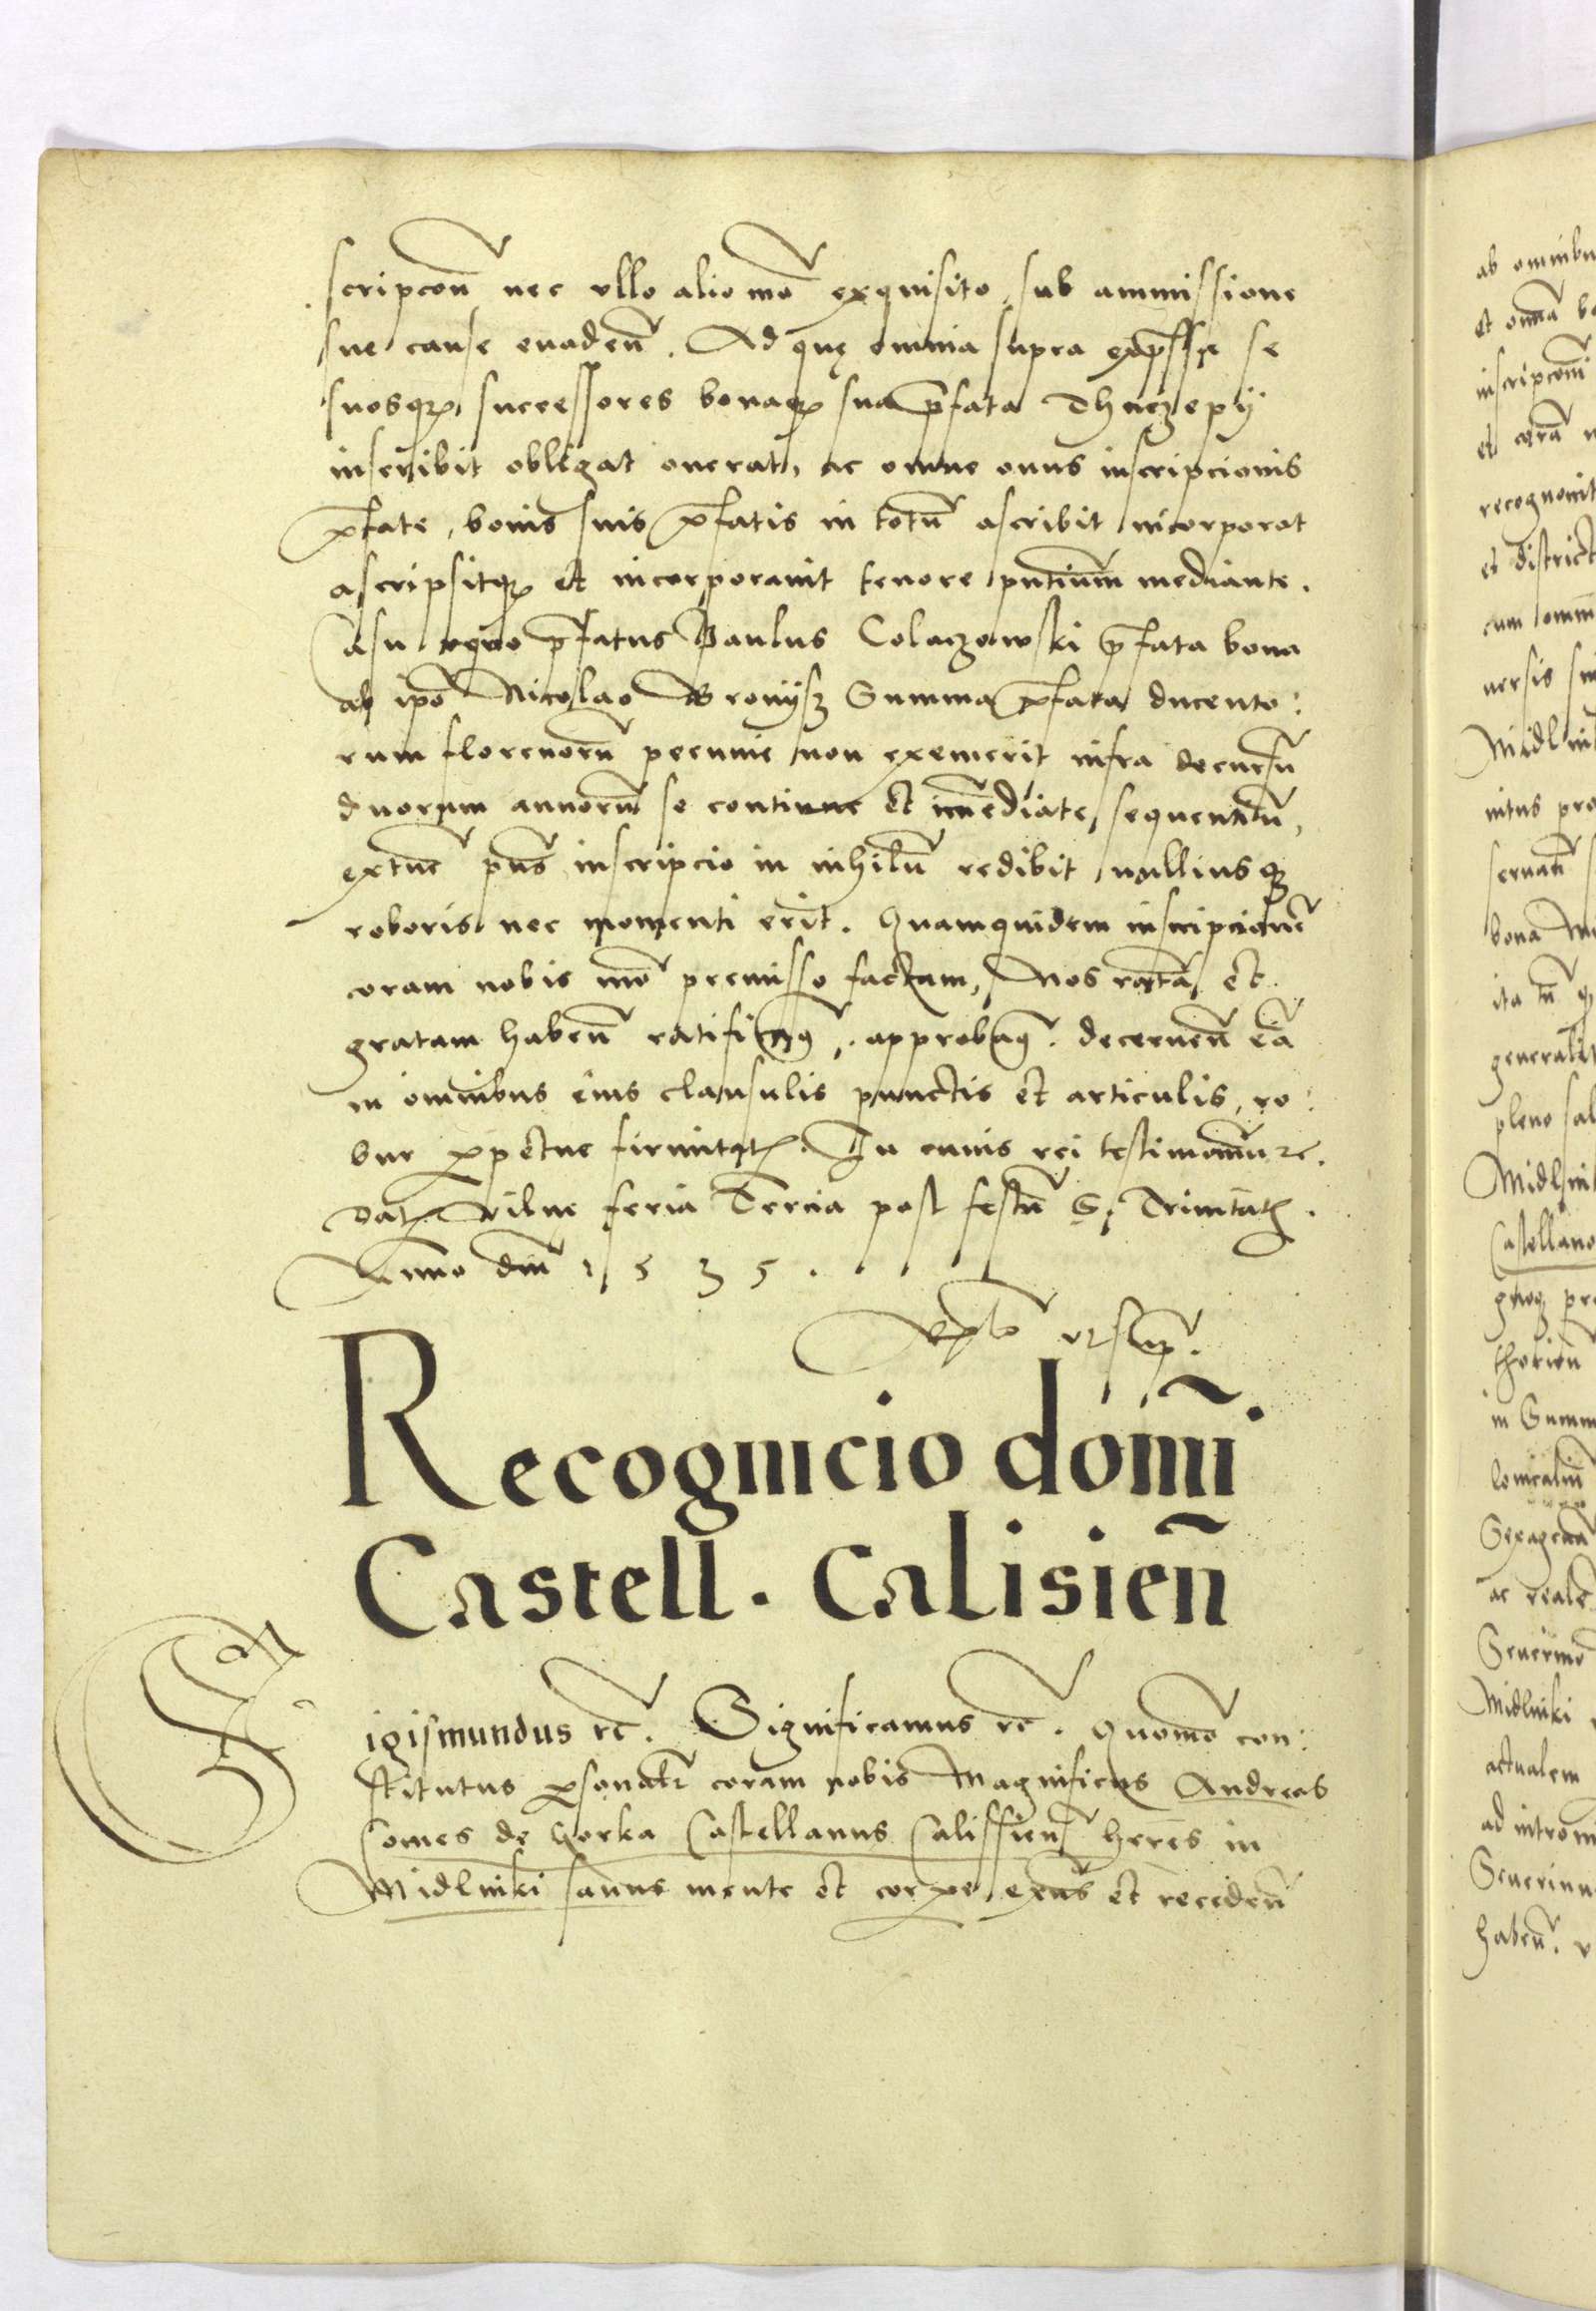 scripcoñ nec ullo alio mõ exquisito sub ammissione
sue cause evadeñ. Ad quę omnia supra exp̃ssa se
suosqȝ successores bonaqȝ sua p̃fata Thuczepÿ
inscribit obligat onerat, ac omne onus inscripcionis
p̃fate, bonis suis p̃fatis in totũ ascribit incorporat
ascripsitqȝ et incorporavit tenore pñtium mediante.
Casu vero p̃fatus Paulus Colaczowski p̃fata bona
ab ip̃o Nicolao Bronÿsz Summa p̃fata ducento:
rum florenorũ pecunie non exemerit infra decursũ
duorum annorũ se continue et im̃ediate sequentiũ,
extunc pñs inscripcio in nihilũ redibit nulliusqȝ
roboris nec momenti erit. Quamquidem inscripcionẽ
coram nobis mõ premisso factam, Nos ratã et
gratam habeñ ratificamꝰ, approbamꝰ. decerneñ eã
in omnibus eius clausulis punctis et articulis, ro:
bur ꝑpetue firmitatꝭ. In cuius rei testimoniũ ꝛc.
Datꝭ Vilne feria Tercia post festũ S. Trinitatꝭ.
Anno dñi 1535.
Relatio ut supꝰ.
Recognicio domĩ
Castell. Calisieñ
Sigismundus ꝛc̃. Significamus ꝛc̃. Quomõ con:
stitutus ꝑsonalr̃ coram nobis Magnificus Andreas
Comes de Gorka Castellanus Calissieñ heres in
Midlniki sanus mente et corpe exñs et recedeñ
ab omnibu
et omñã
inscripcom̃
et corã
recognovit
et district
cum omni
versis
Midlni
nitus pro
servatũ
bona
ita tñ
generalit
pleno sal
Midlni
Castellano
thorieñ
in Summ
Sexagena
ac reale
Severino
Midlniki
actualem
ad introm
Severinu
habeñ.